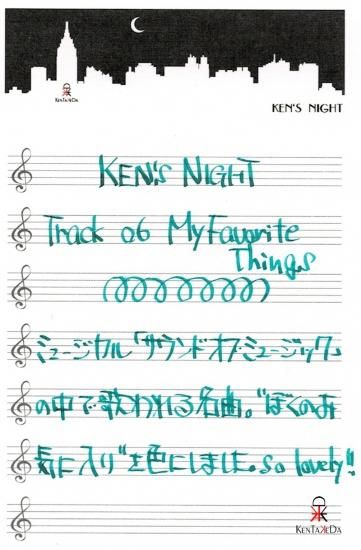 KENTAKEDA
KEN'S NIGHT
KEN'S NIGHT
Track 06 My Favorite
Things
ミュージカル「サウンドオブミュージック」
の中で歌われる名曲。"ぼくのお
気に入り"を色にしました。so lovely!!
KENTAKEDA